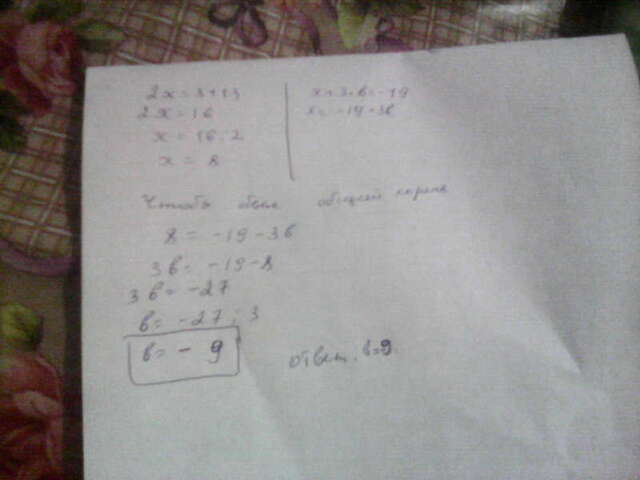 2x = 3+13
2x = 16
x = 16:2
x = 8
x+3·в = -19
x = -19-3в
Чтобы был общий корень
8 = -19-3в
3в = -19-8
3в = -27
в = -27:3
в = -9
ответ. в=9